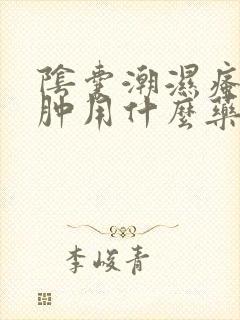 陰囊潮濕瘙
肿用什麼藥
李峻青